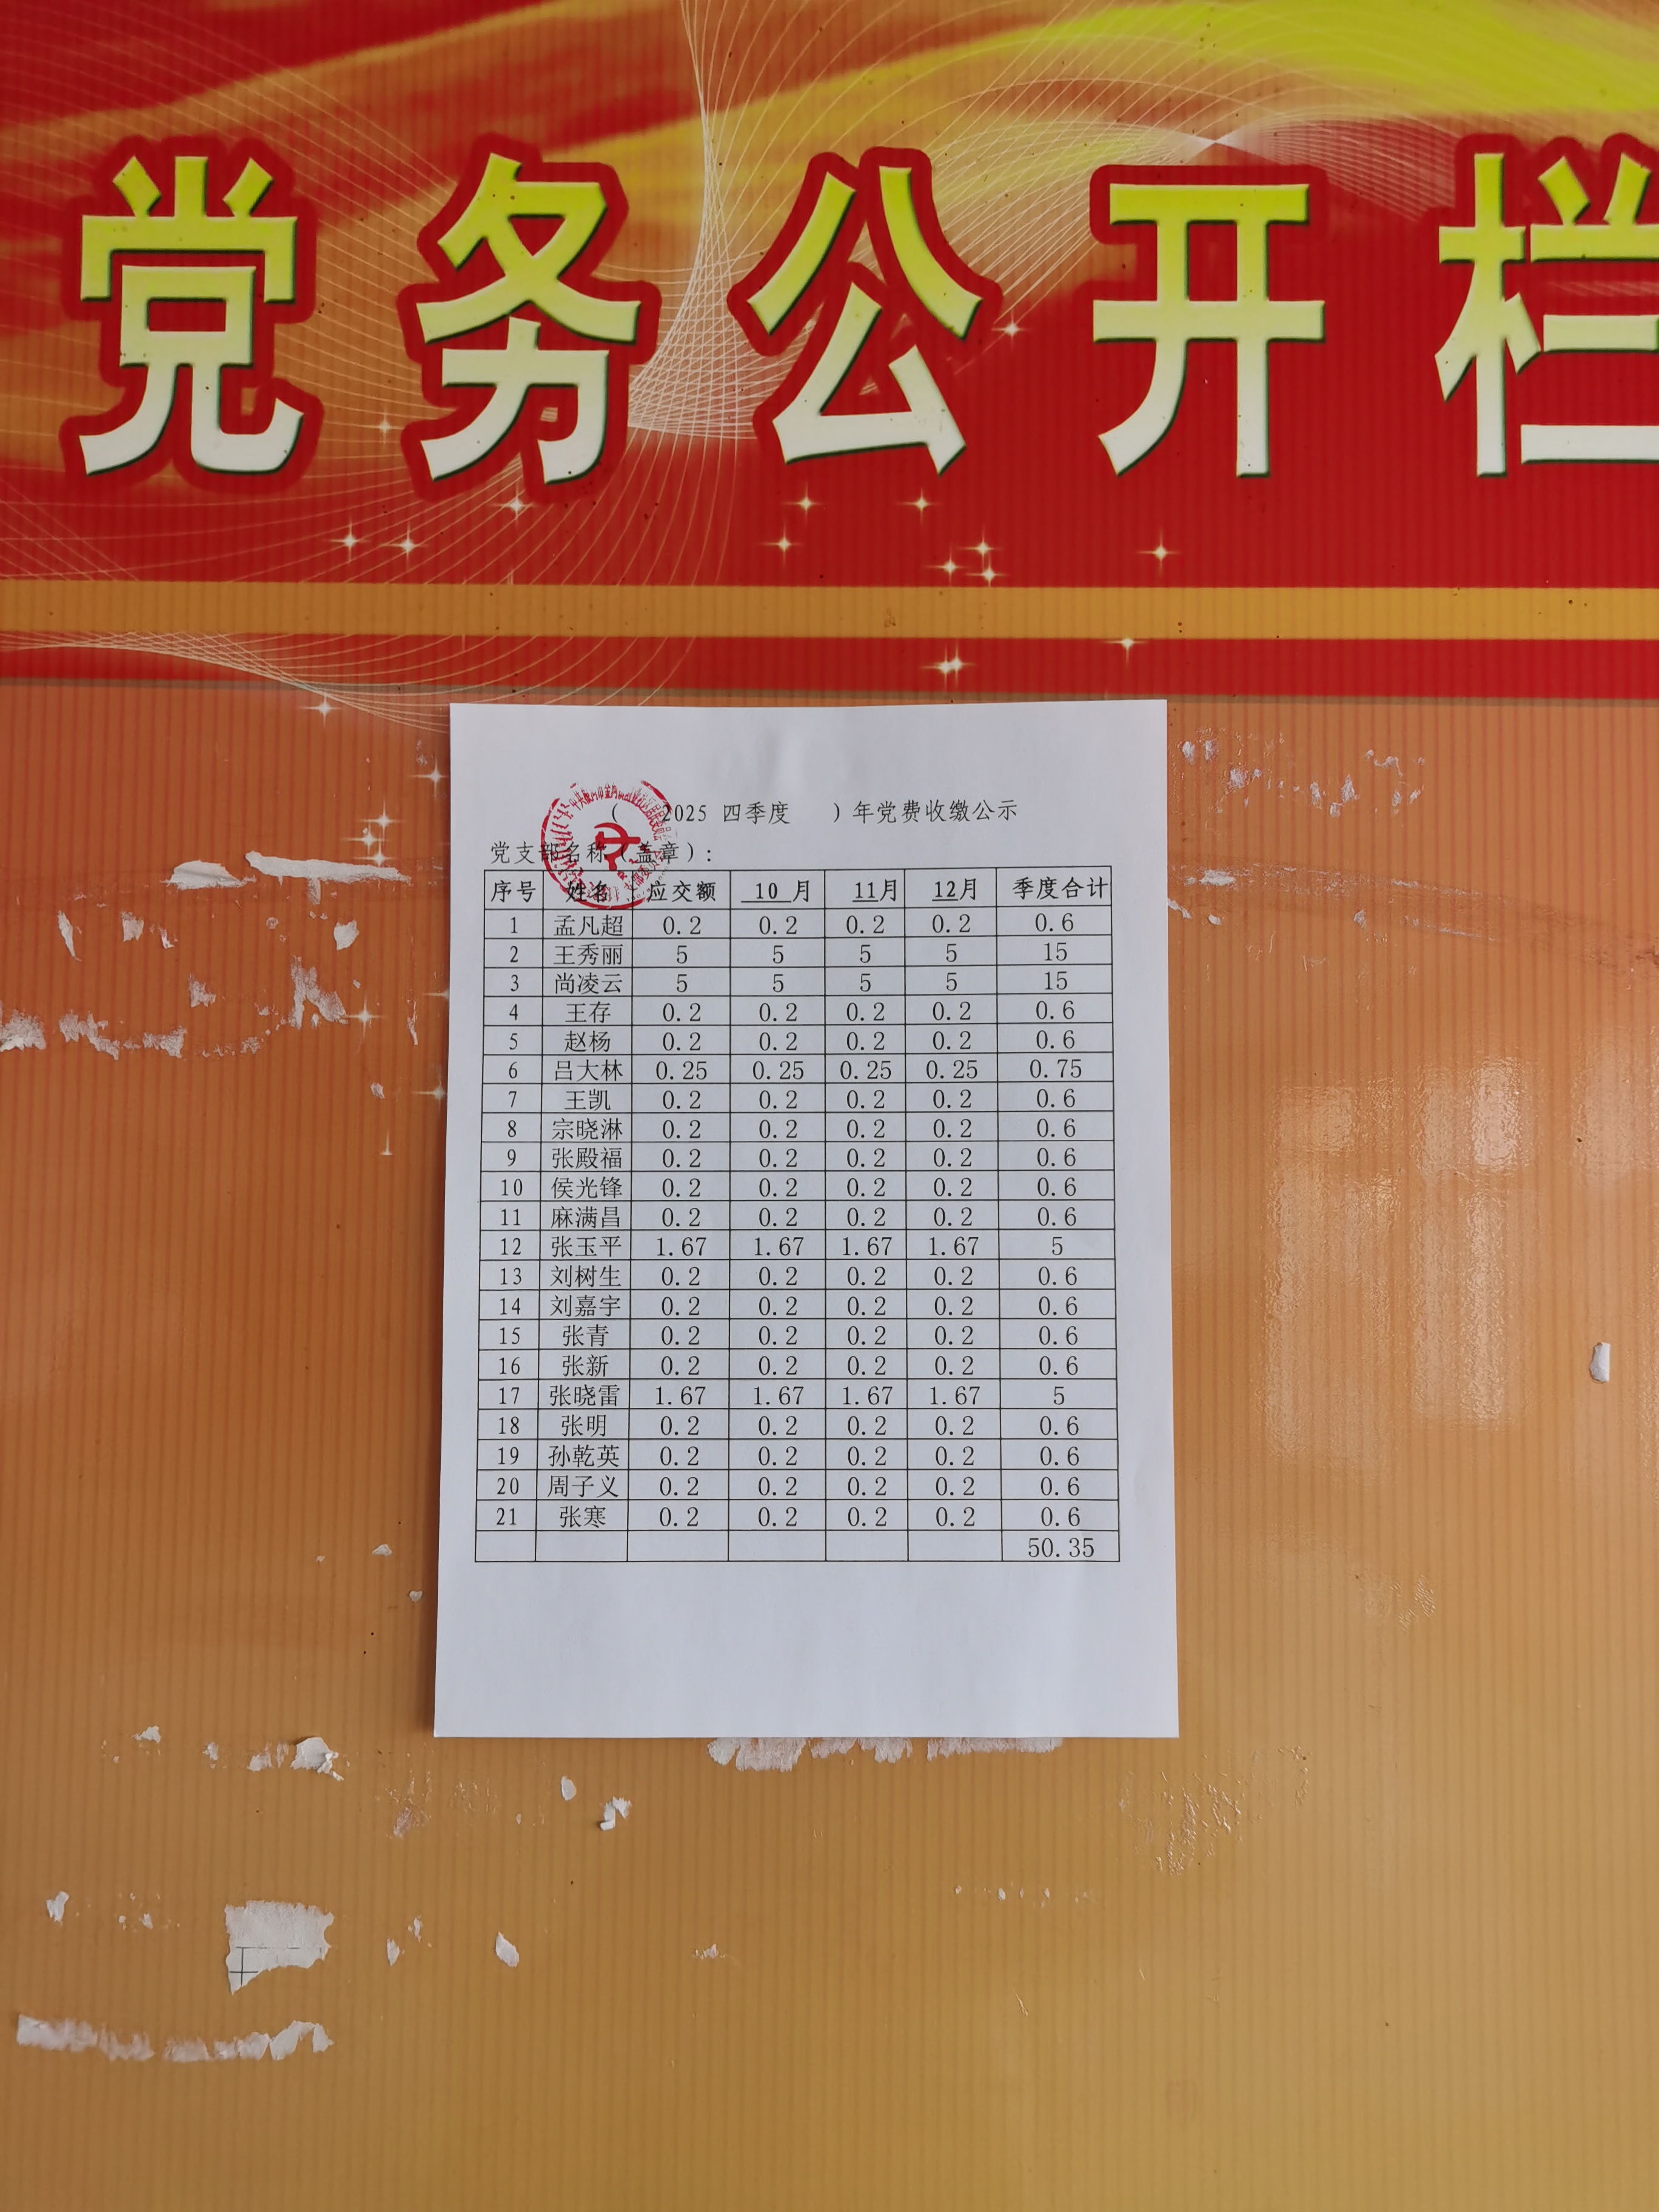 党务公开栏
( 2025 四季度 ) 年党费收缴公示
党支部名称（盖章）:
序号 姓名 应交额 10 月 11月 12月 季度合计
1 孟凡超 0.2 0.2 0.2 0.2 0.6
2 王秀丽 5 5 5 5 15
3 尚凌云 5 5 5 5 15
4 王存 0.2 0.2 0.2 0.2 0.6
5 赵杨 0.2 0.2 0.2 0.2 0.6
6 吕大林 0.25 0.25 0.25 0.25 0.75
7 王凯 0.2 0.2 0.2 0.2 0.6
8 宗晓淋 0.2 0.2 0.2 0.2 0.6
9 张殿福 0.2 0.2 0.2 0.2 0.6
10 侯光锋 0.2 0.2 0.2 0.2 0.6
11 麻满昌 0.2 0.2 0.2 0.2 0.6
12 张玉平 1.67 1.67 1.67 1.67 5
13 刘树生 0.2 0.2 0.2 0.2 0.6
14 刘嘉宇 0.2 0.2 0.2 0.2 0.6
15 张青 0.2 0.2 0.2 0.2 0.6
16 张新 0.2 0.2 0.2 0.2 0.6
17 张晓雷 1.67 1.67 1.67 1.67 5
18 张明 0.2 0.2 0.2 0.2 0.6
19 孙乾英 0.2 0.2 0.2 0.2 0.6
20 周子义 0.2 0.2 0.2 0.2 0.6
21 张寒 0.2 0.2 0.2 0.2 0.6
50.35